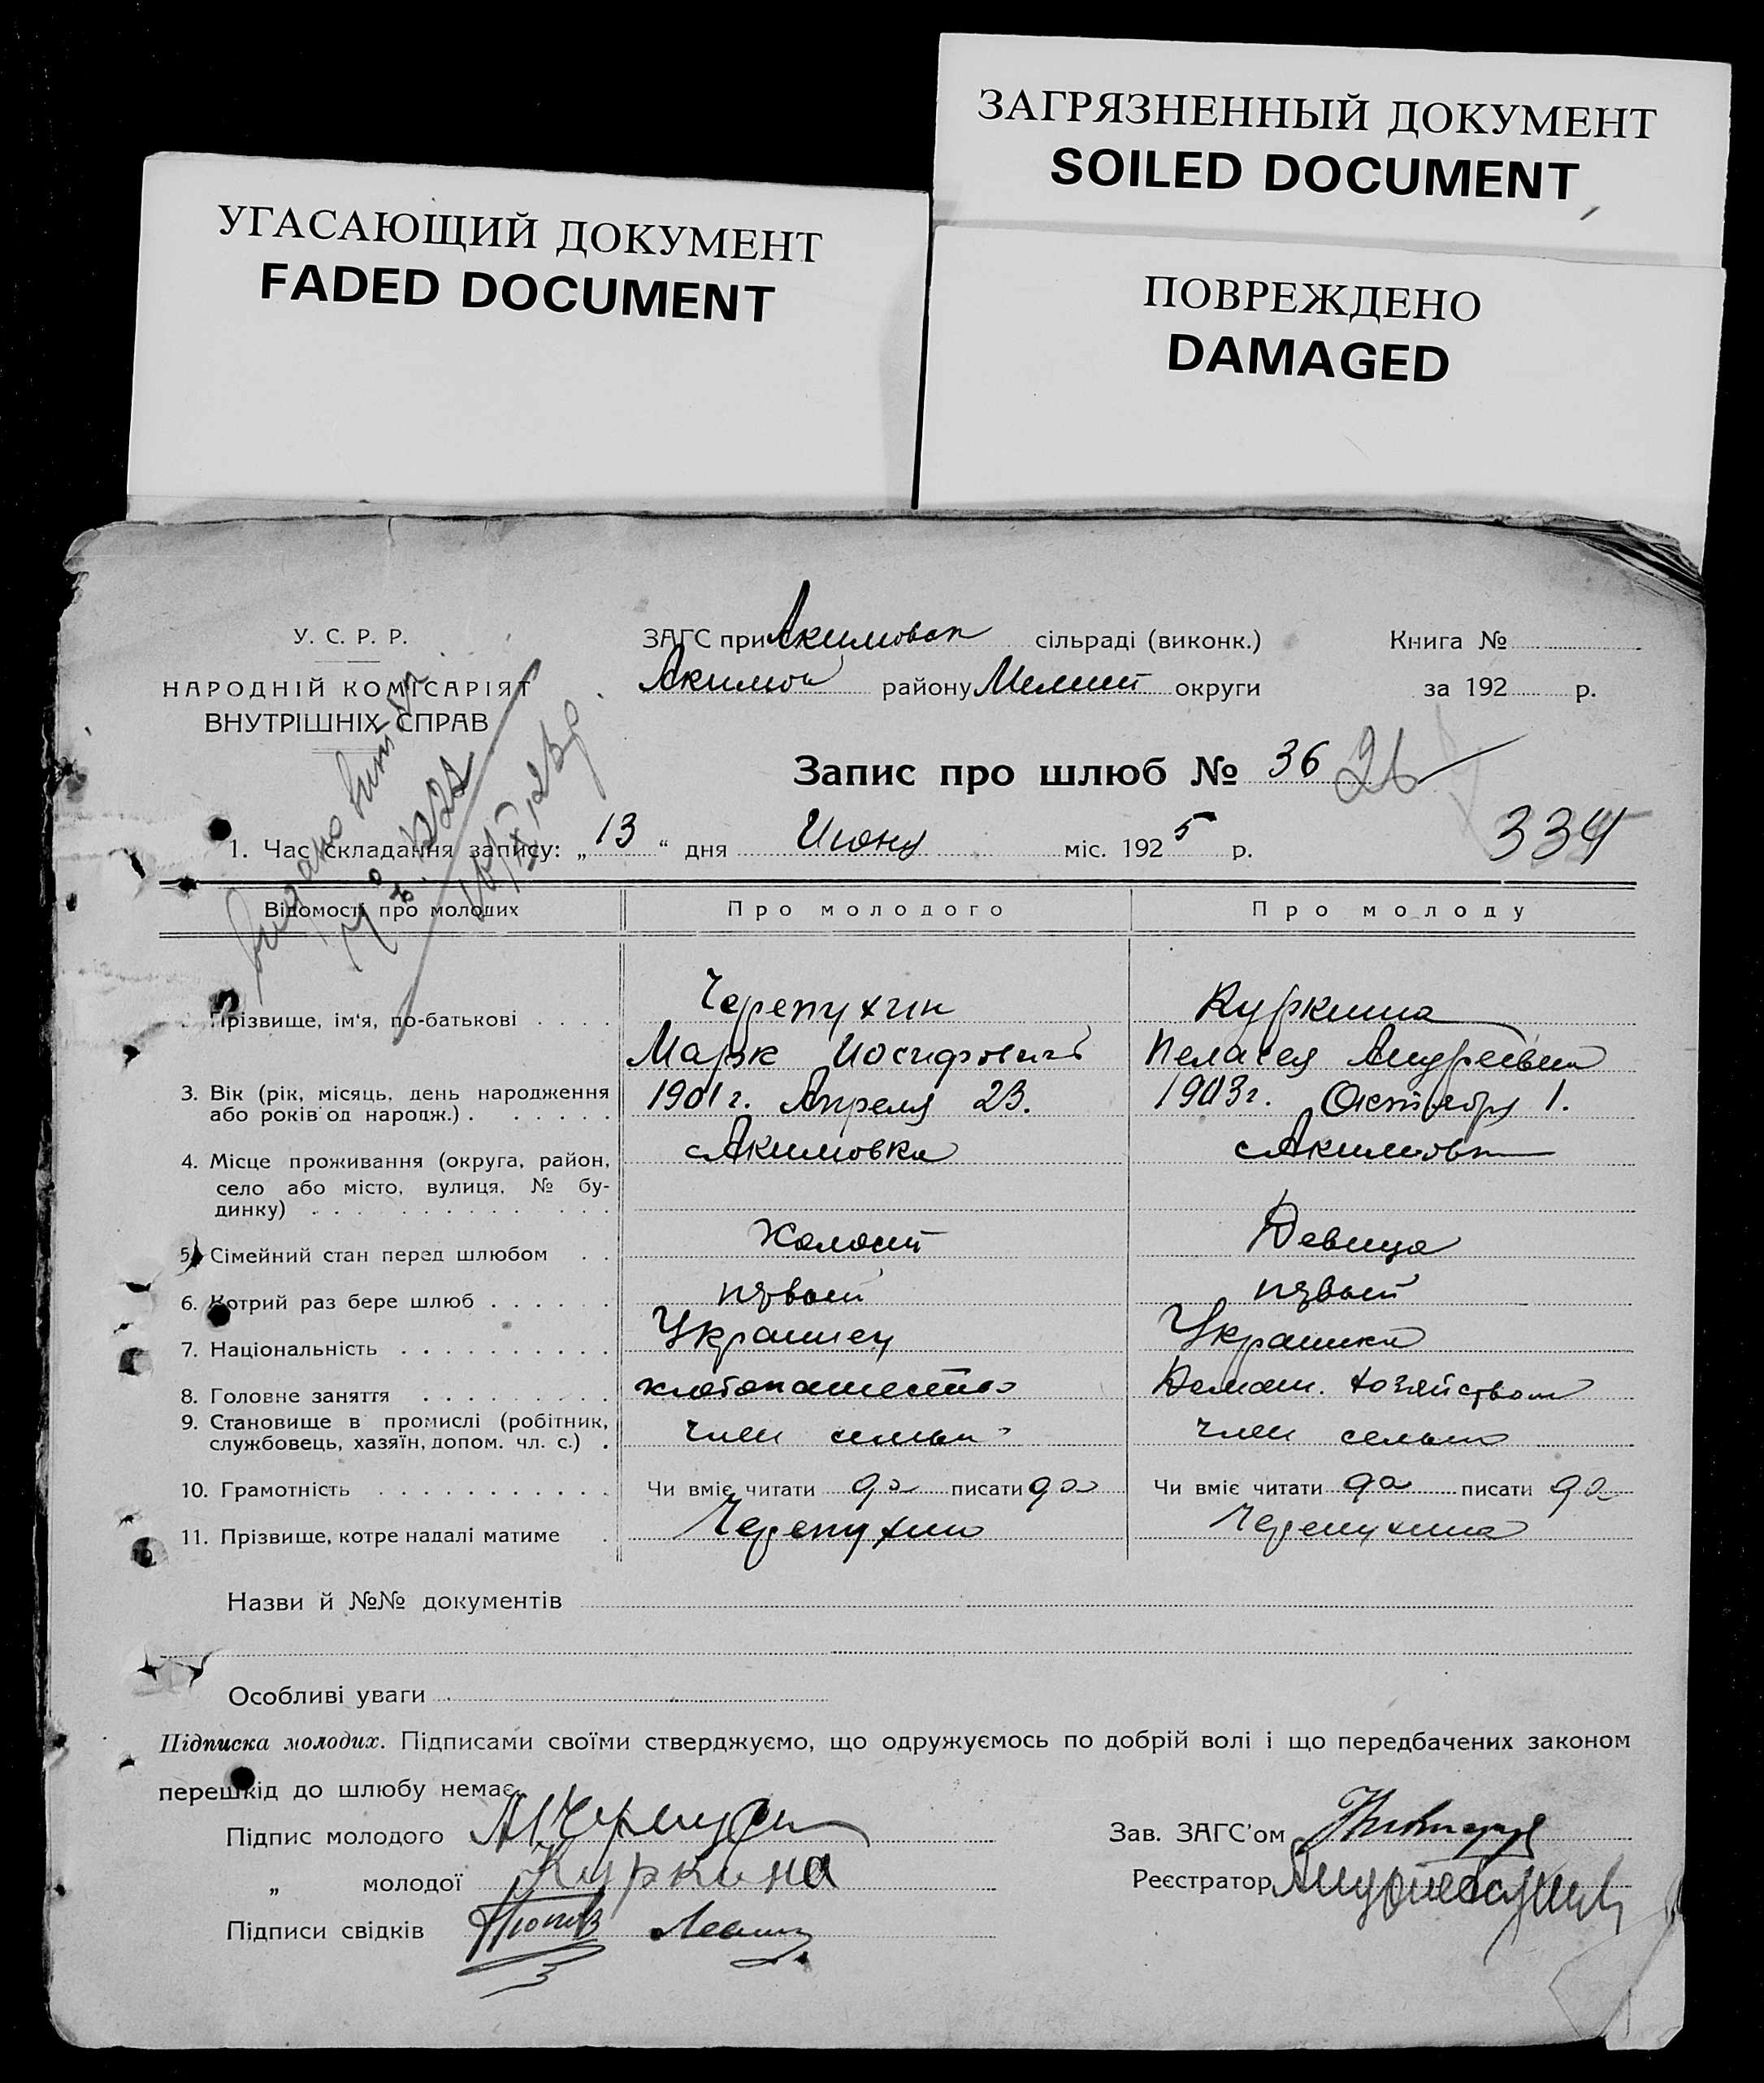 ЗАГРЯЗНЕННЫЙ ДОКУМЕНТ
SOILED DOCUMENT
УГАСАЮЩИЙ ДОКУМЕНТ
FADED DOCUMENT
ПОВРЕЖДЕНО
DAMAGED
У. С. Р. Р.
НАРОДНІЙ КОМІСАРІЯТ
ВНУТРІШНІХ СПРАВ
ЗАГС при Акимовск сільраді (виконк.) Книга №
Акимов району Мелит округи за 192 р.
Запис про шлюб № 36 26
334
1. Час складання запису: „13“ дня Июня міс. 1925 р.
Відомості про молодих Про молодого Про молоду
Прізвище, ім‘я, по-батькові Черепухин Куркина
Марк Иосифович Пелагея Андреевна
3. Вік (рік, місяць, день народження 1901 г. Апреля 23. 1903 г. Октября 1.
або років од народж.)
4. Місце проживання (округа, район, с Акимовка с Акимовка
село або місто, вулиця, № бу-
динку)
5. Сімейний стан перед шлюбом Холост Девица
6. Котрий раз бере шлюб первый первый
7. Національність Украинец Украинка
8. Головне заняття хлебопашество Домаш. хозяйством
9. Становище в промислі (робітник, член семьи член семьи
службовець, хазяїн, допом. чл. с.)
10. Грамотність Чи вміє читати да писати да Чи вміє читати да писати да
11. Прізвище, котре надалі матиме Черепухин Черепухина
Назви й №№ документів
Особливі уваги
Підписка молодих. Підписами своїми стверджуємо, що одружуємось по добрій волі і що передбачених законом
перешкід до шлюбу немає.
Підпис молодого Зав. ЗАГС’ом
„ молодої Куркина Реєстратор
Підписи свідків Попов